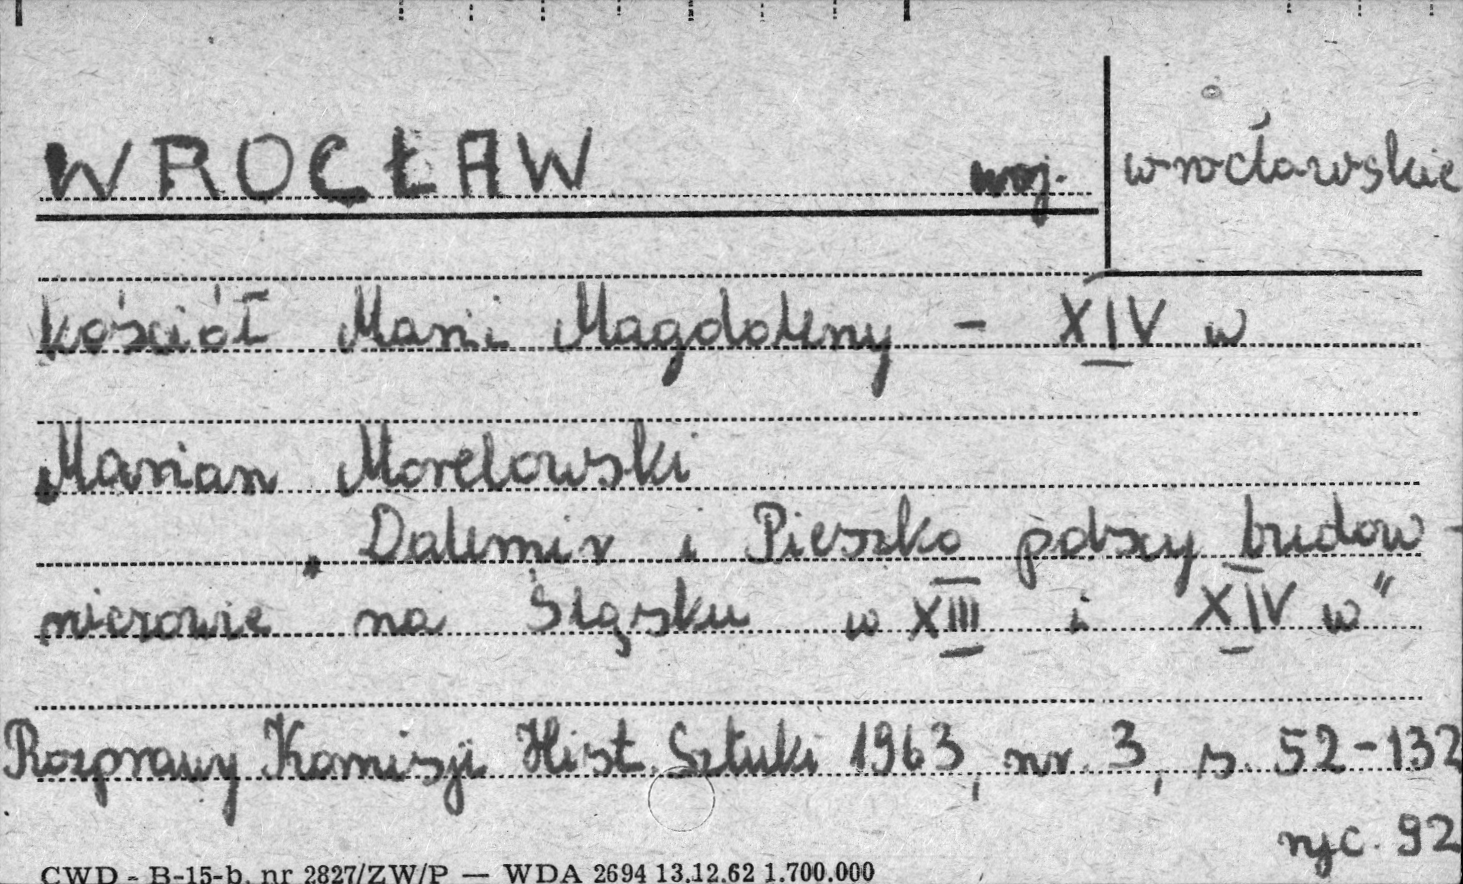 WROCŁAW woj. wrocławskie
kościół Marii Magdaleny - XIV w
Marian Morelowski
"Dalemir i Pieszko polscy budow-
niczowie na Śląsku w XIII i XIV w"
Rozprawy Komisji Hist. Sztuki 1963, nr. 3, s. 52-132
ryc. 92
CWD - B-15-b. nr 2827/ZW/P — WDA 2694 13.12.62 1.700.000